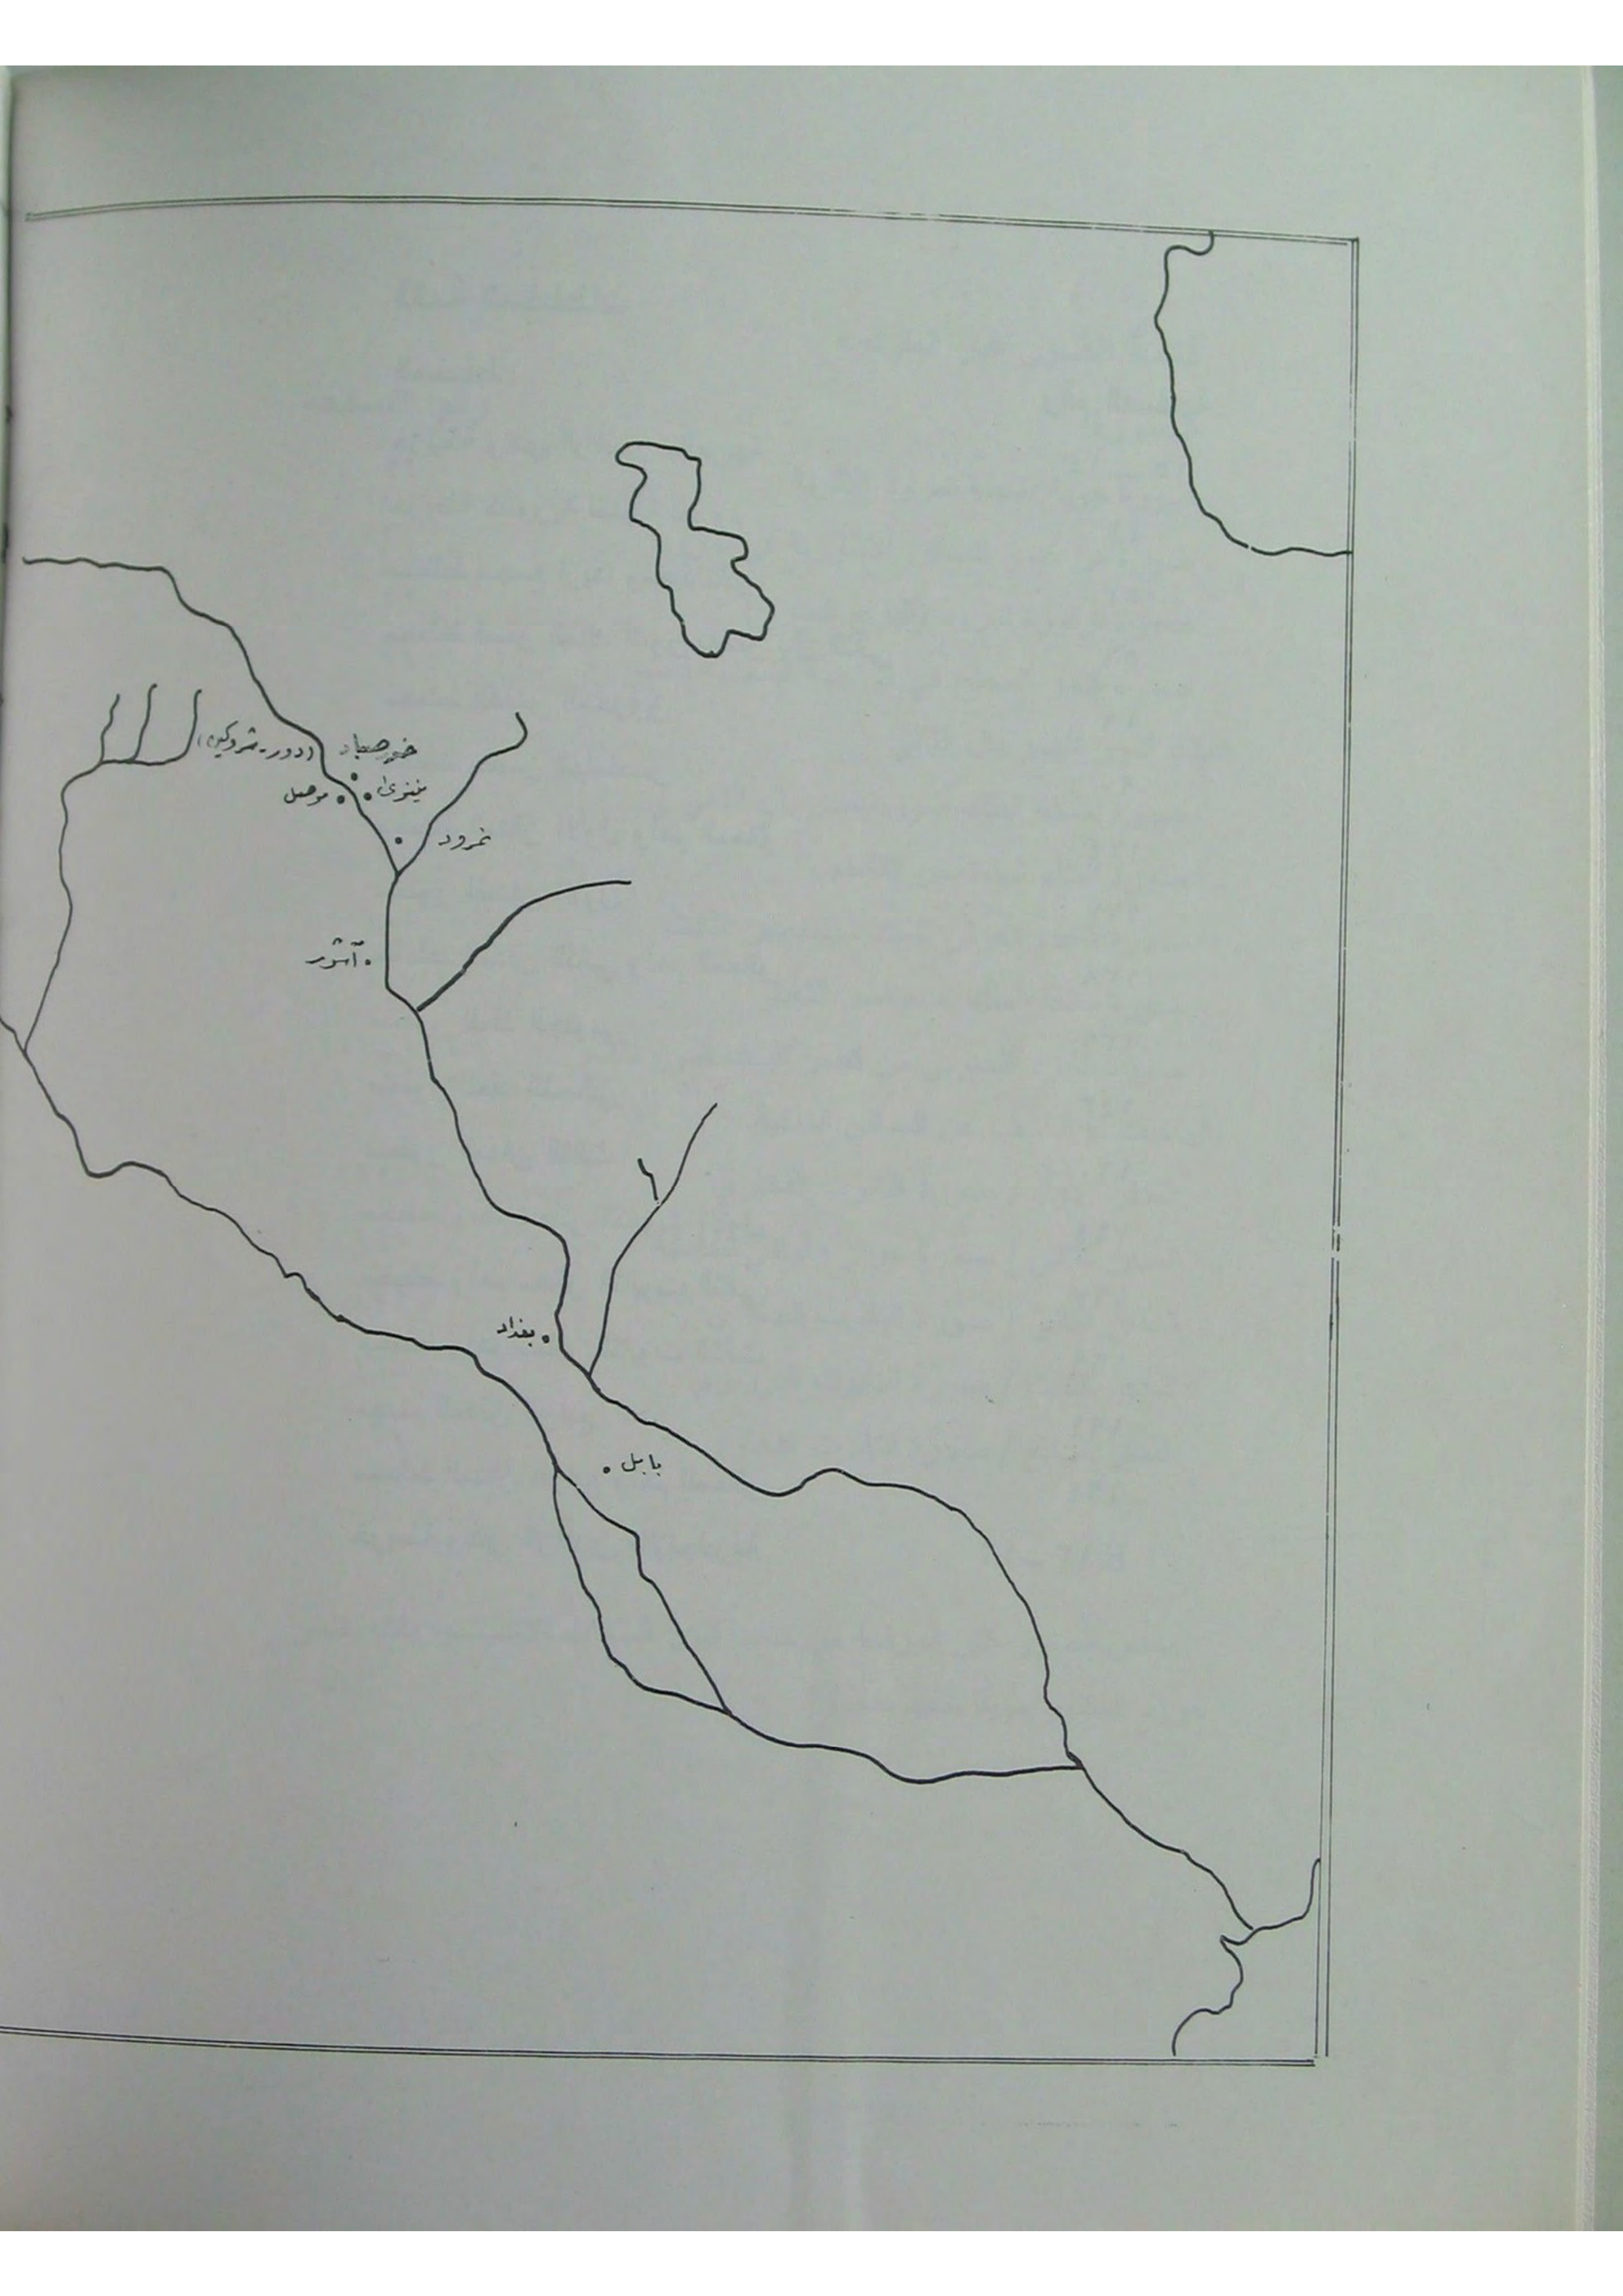 خورصباد (دور-شروكين)
نينوى
موصل
نمرود
آشور
بغداد
بابل